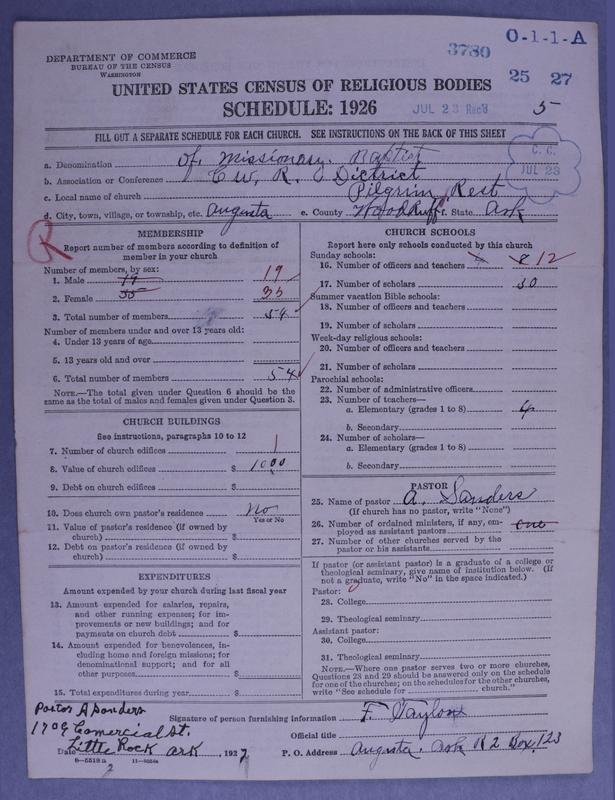 O-1-1-A
DEPARTMENT OF COMMERCE
BUREAU OF THE CENSUS
WASHINGTON
3780
25 27
UNITED STATES CENSUS OF RELIGIOUS BODIES
SCHEDULE: 1926
JUL 23 Rec'd
5
FILL OUT A SEPARATE SCHEDULE FOR EACH CHURCH. SEE INSTRUCTIONS ON THE BACK OF THIS SHEET
C. C.
JUL 23
a. Denomination of Missionary Baptist
b. Association or Conference C W. R. District
c. Local name of church Pilgrim Rest
d. City, town, village, or township, etc. Augusta e. County Woodruff f. State Ark
R
MEMBERSHIP
Report number of members according to definition of
member in your church
Number of members, by sex:
1. Male 19 19
2. Female 35 35
3. Total number of members 54
Number of members under and over 13 years old:
4. Under 13 years of age
5. 13 years old and over
6. Total number of members 54
NOTE.—The total given under Question 6 should be the
same as the total of males and females given under Question 3.
CHURCH BUILDINGS
See instructions, paragraphs 10 to 12
7. Number of church edifices 1
8. Value of church edifices $ 1000
9. Debt on church edifices $
10. Does church own pastor's residence? No
Yes or No
11. Value of pastor's residence (if owned by
church) $
12. Debt on pastor's residence (if owned by
church) $
EXPENDITURES
Amount expended by your church during last fiscal year
13. Amount expended for salaries, repairs,
and other running expenses; for im-
provements or new buildings; and for
payments on church debt $
14. Amount expended for benevolences, in-
cluding home and foreign missions; for
denominational support; and for all
other purposes $
15. Total expenditures during year $
CHURCH SCHOOLS
Report here only schools conducted by this church
Sunday schools:
16. Number of officers and teachers 8 12
17. Number of scholars 30
Summer vacation Bible schools:
18. Number of officers and teachers
19. Number of scholars
Week-day religious schools:
20. Number of officers and teachers
21. Number of scholars
Parochial schools:
22. Number of administrative officers
23. Number of teachers—
a. Elementary (grades 1 to 8) 4
b. Secondary
24. Number of scholars—
a. Elementary (grades 1 to 8)
b. Secondary
PASTOR
25. Name of pastor A. Sanders
(If church has no pastor, write "None")
26. Number of ordained ministers, if any, em-
ployed as assistant pastors one
27. Number of other churches served by the
pastor or his assistants
If pastor (or assistant pastor) is a graduate of a college or
theological seminary, give name of institution below. (If
not a graduate, write "No" in the space indicated.)
Pastor:
28. College
29. Theological seminary
Assistant pastor:
30. College
31. Theological seminary
NOTE.—Where one pastor serves two or more churches,
Questions 28 and 29 should be answered only on the schedule
for one of the churches; on the schedules for the other churches,
write "See schedule for church."
Pastor A Sanders
1709 Comercial St.
Little Rock Ark
Signature of person furnishing information F. Saylor
Official title
Date , 1927 P. O. Address Augusta, Ark R 2 Box, 123
8-5518 a 11-9084a
2